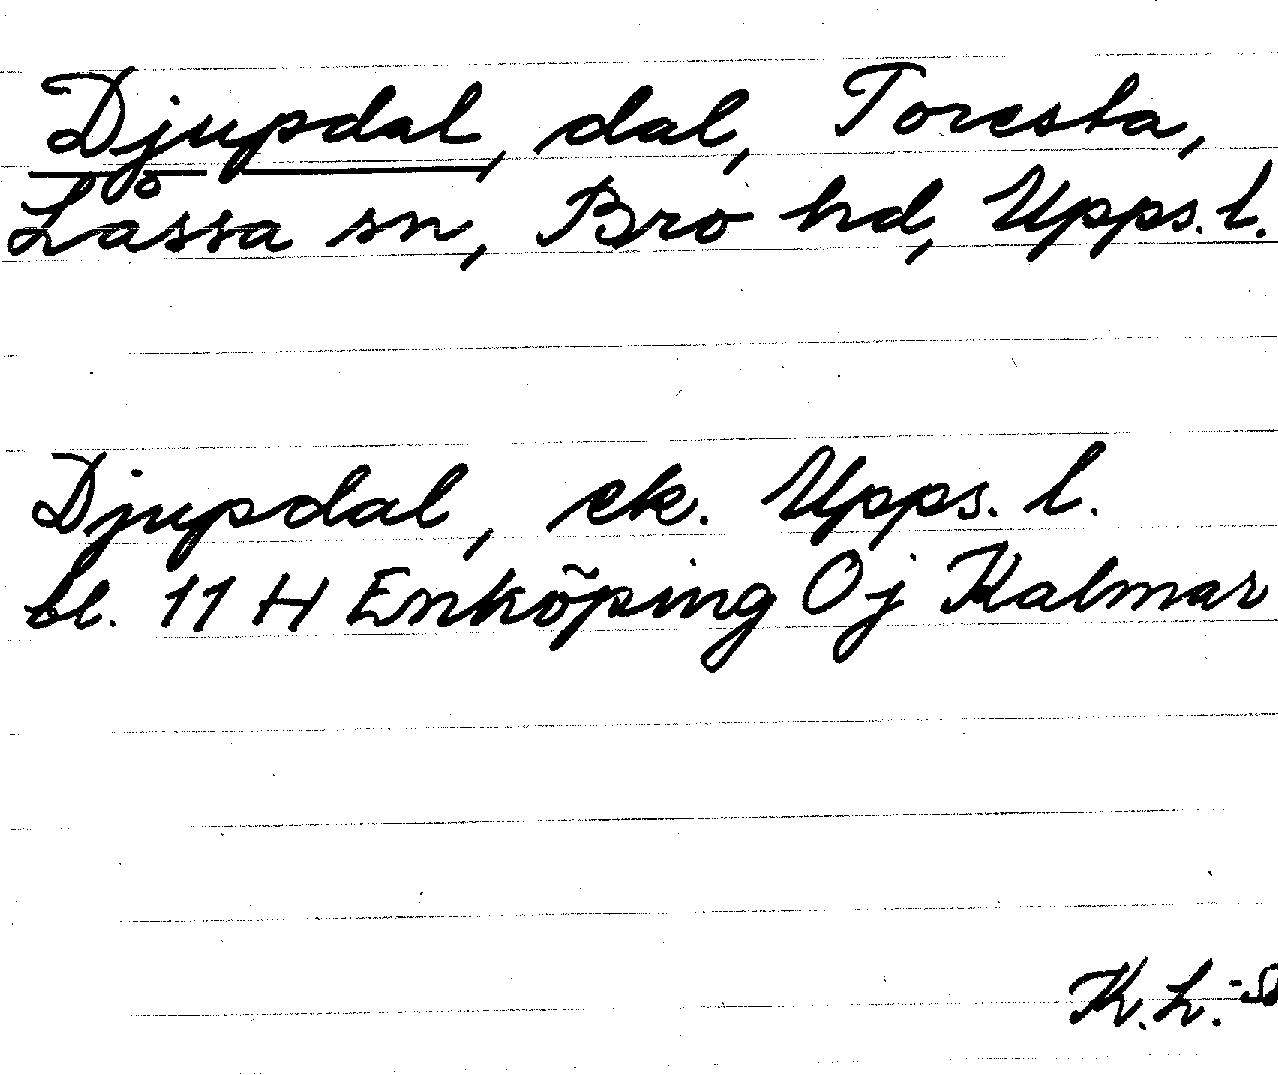 Djupdal, dal, Toresta,
Låssa sn, Bro hd, Upps. l.
Djupdal, ek. Upps. l.
bl. 11 H Enköping Oj Kalmar
K.L.